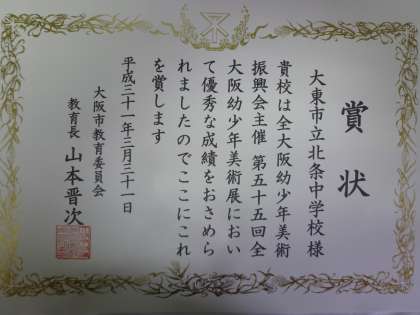 賞状
大東市立北条中学校様
貴校は全大阪幼少年美術
振興会主催 第五十五回全
大阪幼少年美術展におい
て優秀な成績をおさめら
れましたのでここにこれ
を賞します
平成三十一年三月三十一日
大阪市教育委員会
教育長 山本晋次